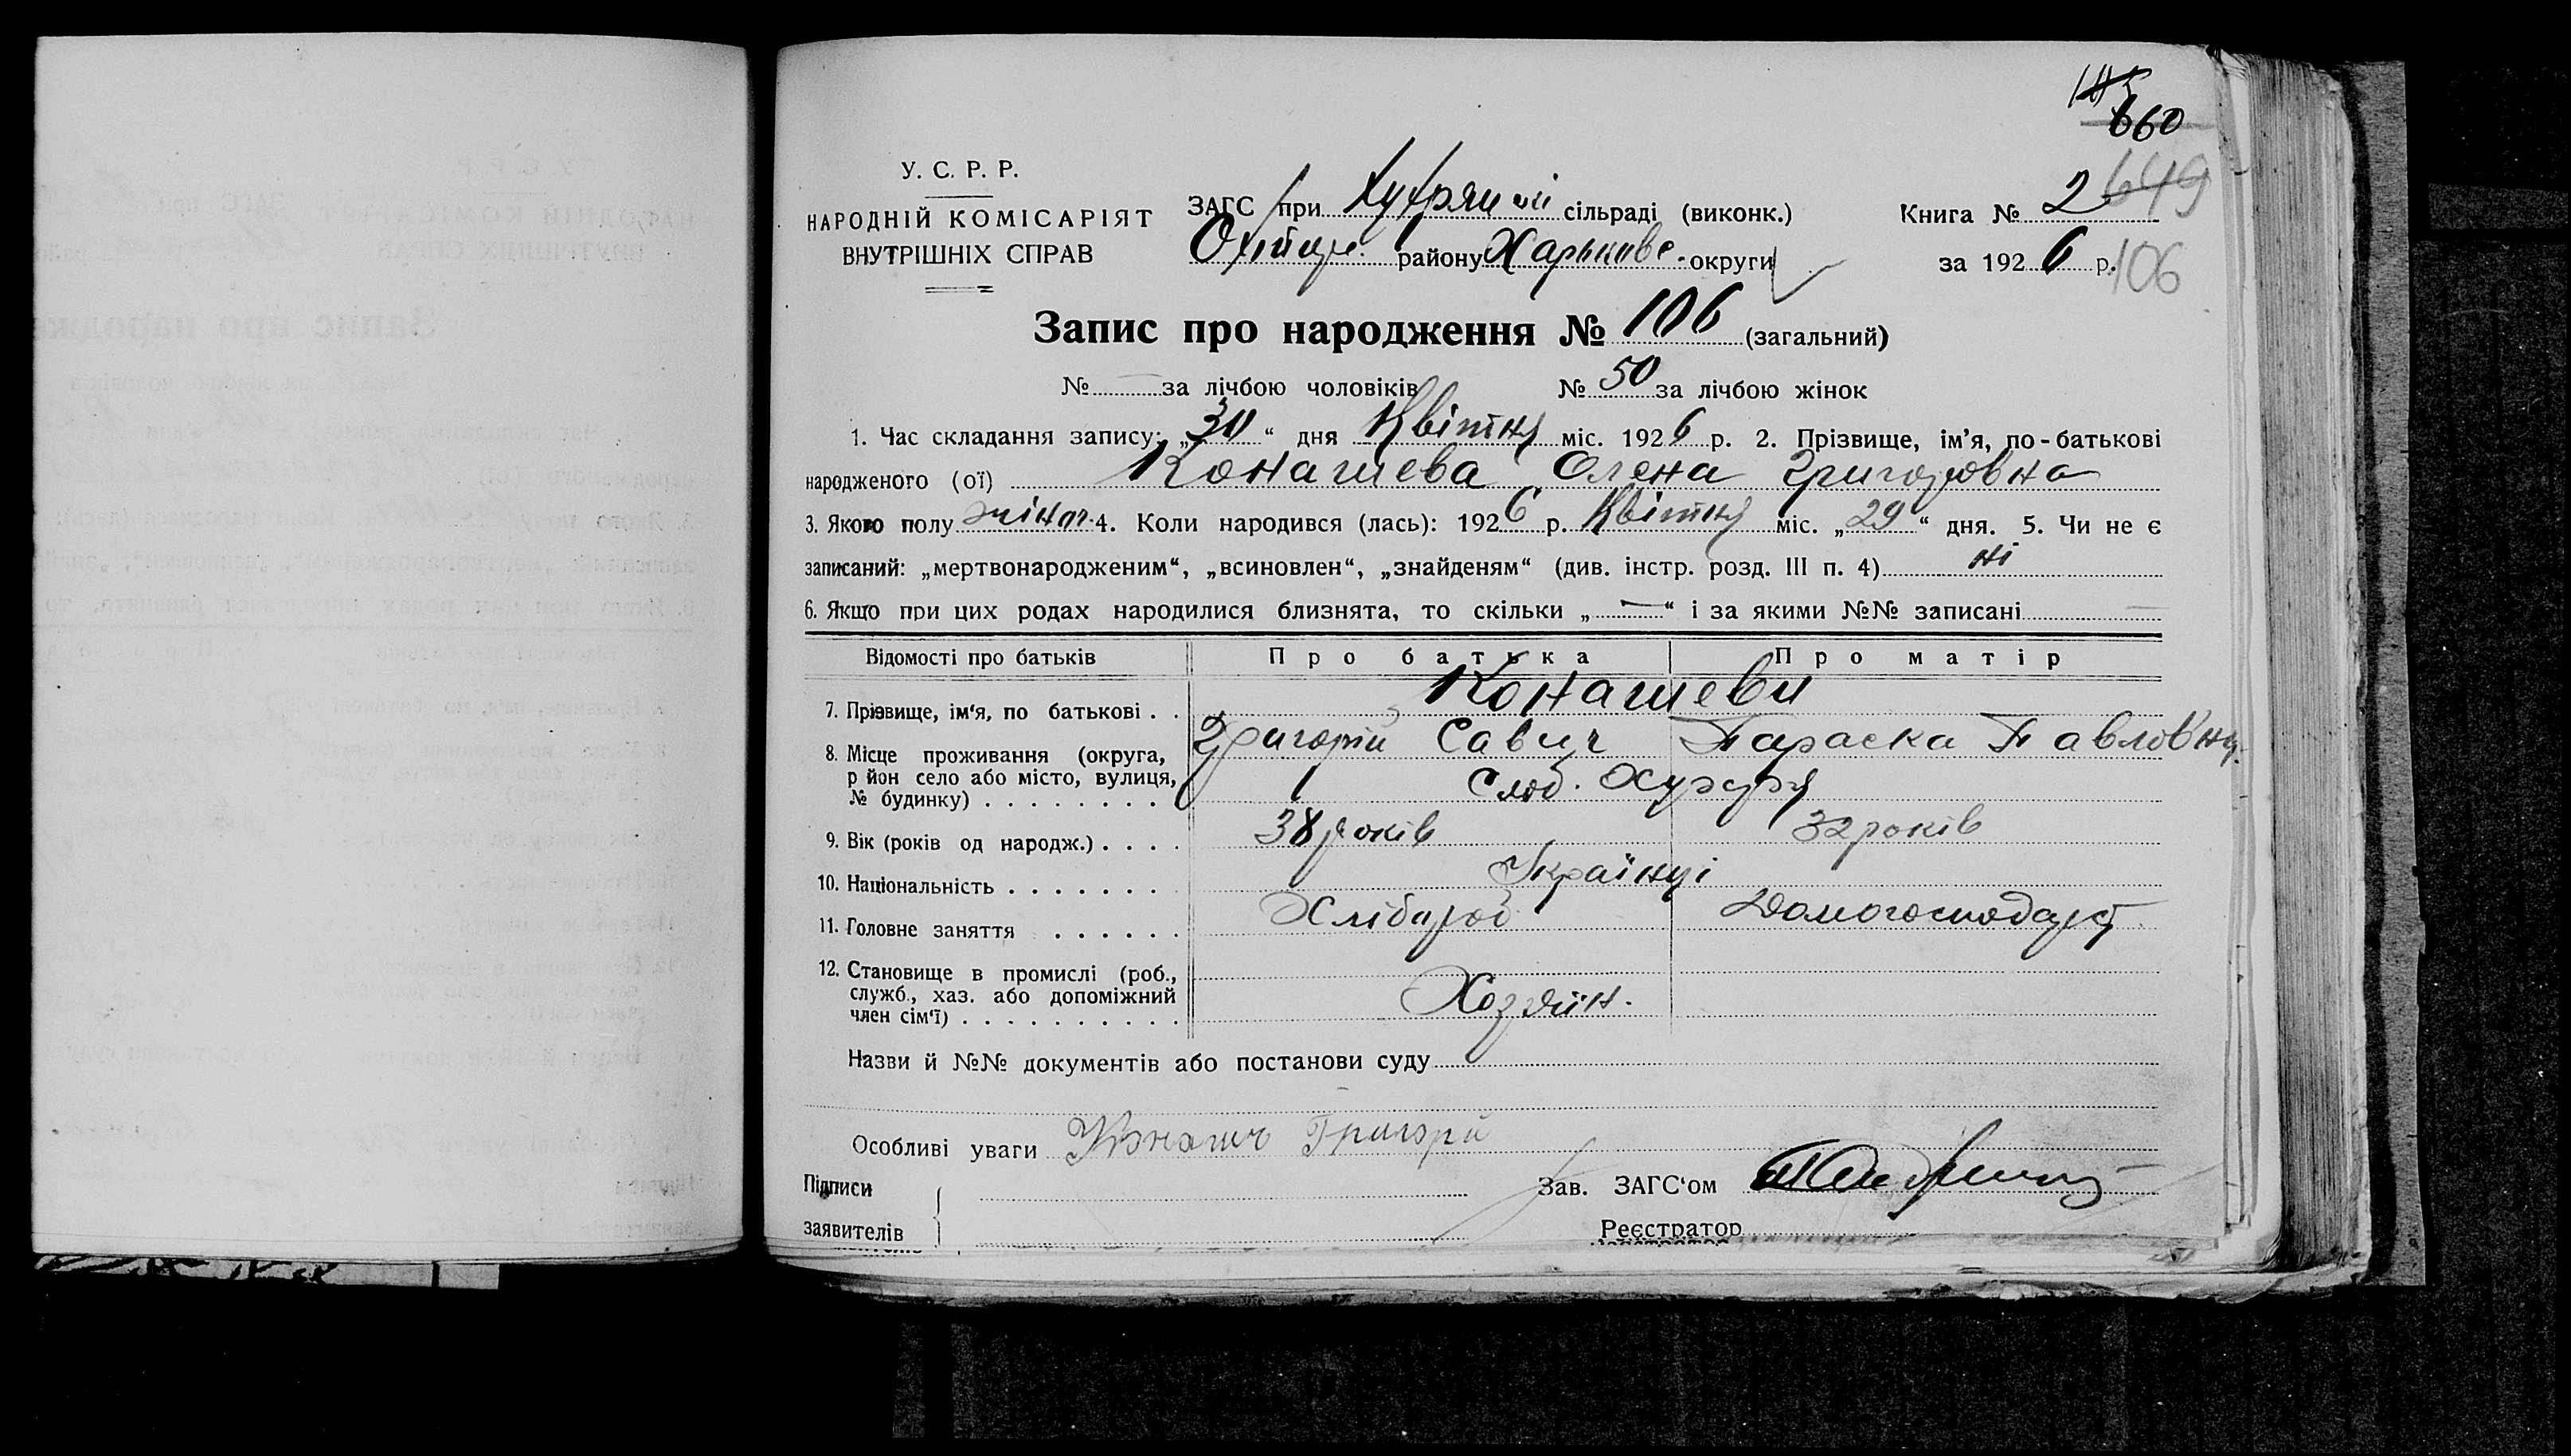 660
649
У. С. Р. Р.
НАРОДНІЙ КОМІСАРІЯТ
ВНУТРІШНІХ СПРАВ
ЗАГС при сільраді (виконк.)
Охтир. району Харьківс. округи
Книга № 2
за 1926 р. 106
Запис про народження № 106 (загальний)
№ — за лічбою чоловіків № 50 за лічбою жінок
1. Час складання запису: „30“ дня Квітня міс. 1926 р. 2. Прізвище, ім’я, по-батькові
народженого (ої) Конашева Олена Григоровна
3. Якого полу жіноч. 4. Коли народився (лась): 1926 р. Квітня міс. „29“ дня. 5. Чи не є
записаний: „мертвонародженим“, „всиновлен“, „знайденям“ (див. інстр. розд. III п. 4) ні
6. Якщо при цих родах народилися близнята, то скільки „—“ і за якими №№ записані —
Відомості про батьків Про батька Про матір
Конашеви
7. Прізвище, ім‘я, по батькові . .
Григорій Савич Параска Павловна
8. Місце проживання (округа,
р йон село або місто, вулиця,
№ будинку) . . . . . . . .
Слоб. Хухря
9. Вік (років од народж.) . . . . 38 років 32 років
10. Національність . . . . . . . Українці
11. Головне заняття . . . . . . Хлібороб Домогосподарст
12. Становище в промислі (роб.,
служб., хаз. або допоміжний
член сім‘ї) . . . . . . . . . .
Хозяїн.
Назви й №№ документів або постанови суду
Особливі уваги Конашич Григорй
Підписи
заявителів
Зав. ЗАГС‘ом
Реєстратор